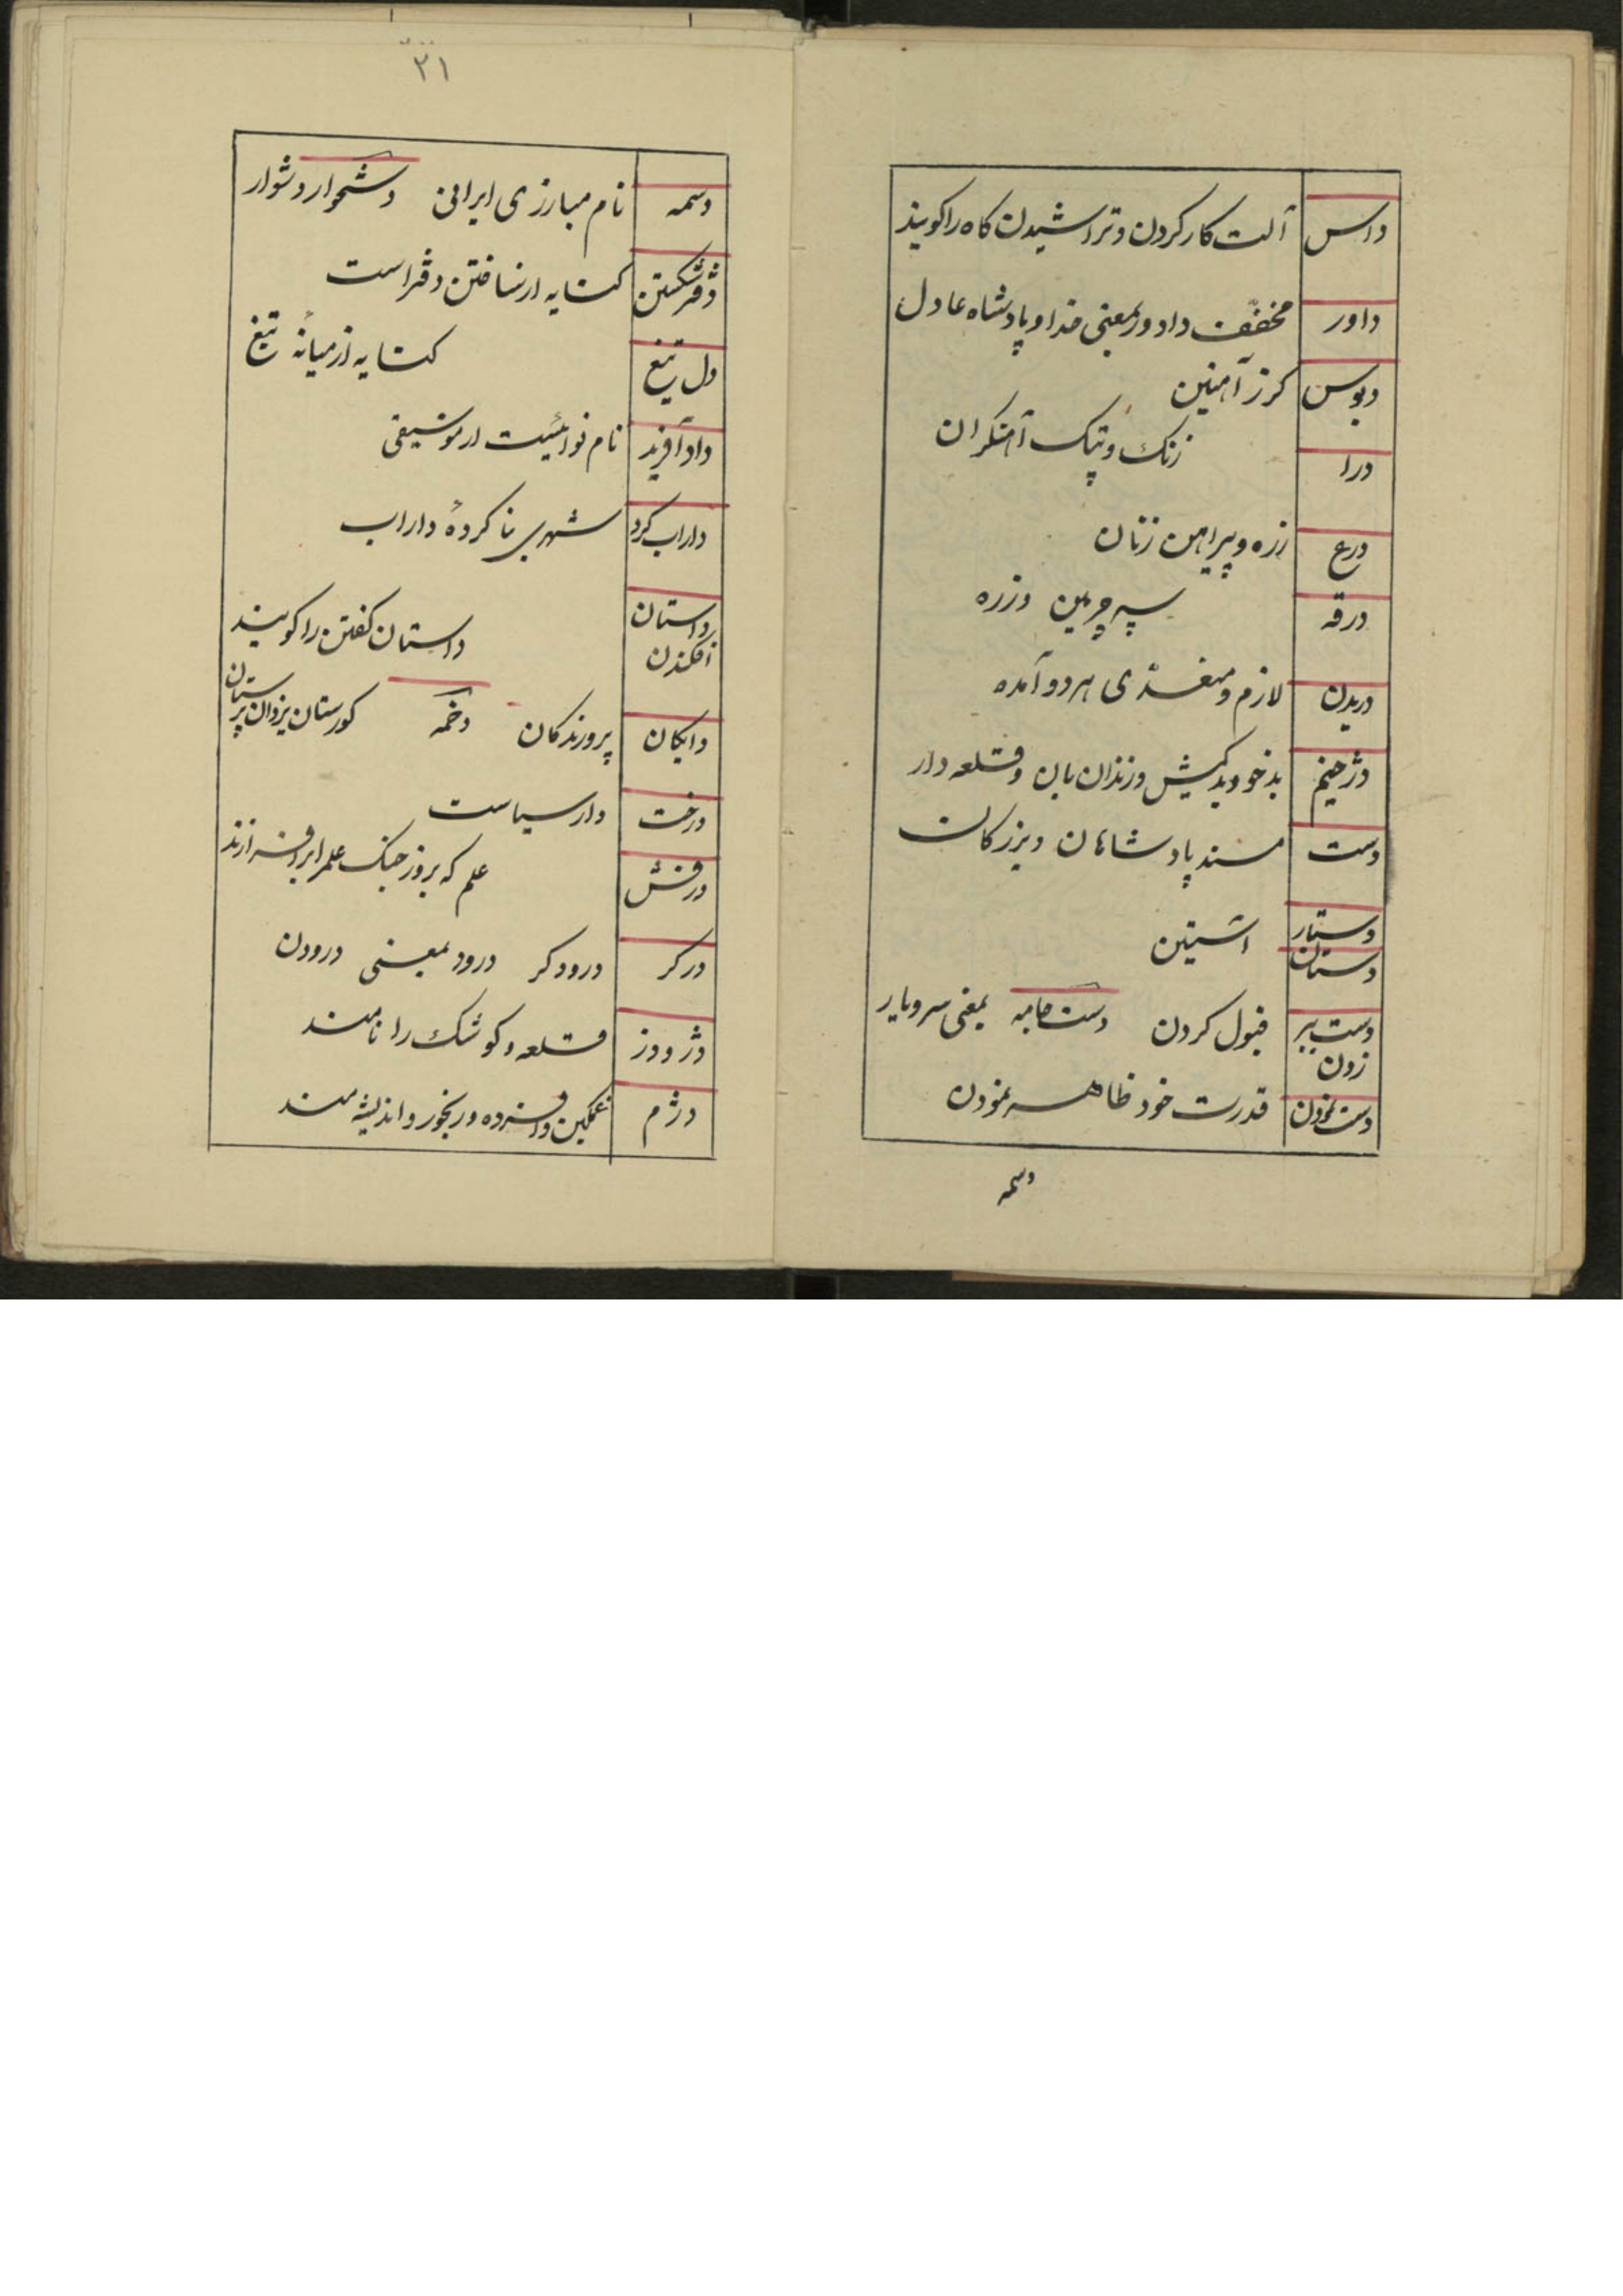 داس آلت کار کردن و تراشیدن کاه را کویند
داور مخفّف دادور بمعنی خدا و پادشاه عادل
دبوس کرز آهنین
درا زنک و پتک آهنکران
درع زره و پیراهن زنان
درقه سپر چرمین و زره
دریدن لازم و متعدّی هر دو آمده
دژخیم بدخو و بدکیش و زندان بان و قلعه دار
دست مسند پادشاهان و بزرکان
دستار
دستان
دست ببر قبول کردن دست جامه بمعنی سروپا
زدن
دست نمودن قدرت خود ظاهر نمودن
دسمه
۳۱
دسمه نام مبارزی ایرانی دشخوار دشوار
دفتر شکستن کنایه از نساختن دفتر است
دل تیغ کنایه از میانهٔ تیغ
داد آفرید نام نوائیست از موسیقی
داراب کرد شهری بنا کردهٔ داراب
داستان
افکندن داستان کفتن را کویند
دایکان پرورندکان دخمه کورستان یزدان پرستان
درخت دار سیاست
درفش علم که بروز جنک علمرا بر افرازند
درکر درودکر درود بمعنی درودن
دژ و دز قلعه و کوشک را نامند
دژم غمکین و افسرده و رنجور و اندیشه مند